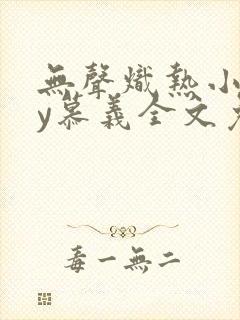 無聲熾熱小
y慕義全文
毒一無二